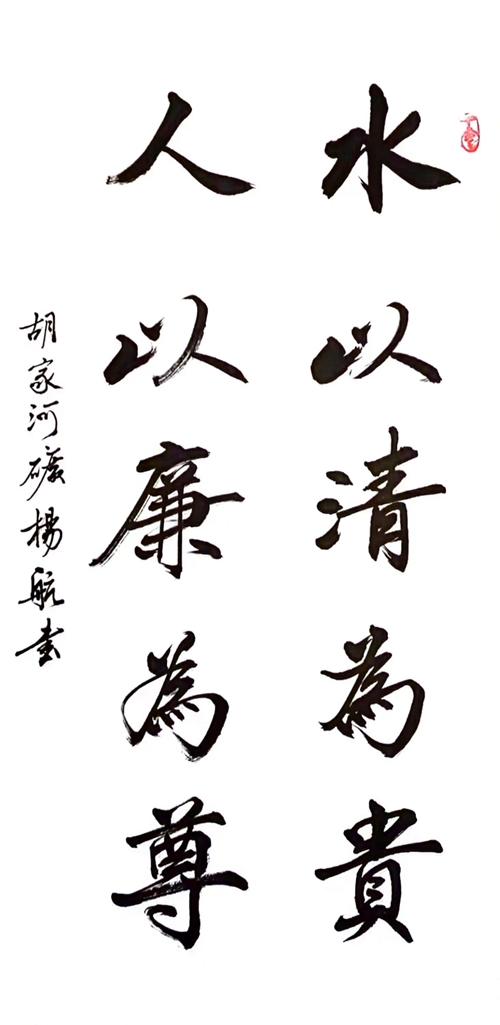 水以清為貴
人以廉為尊
胡家河礦楊航書